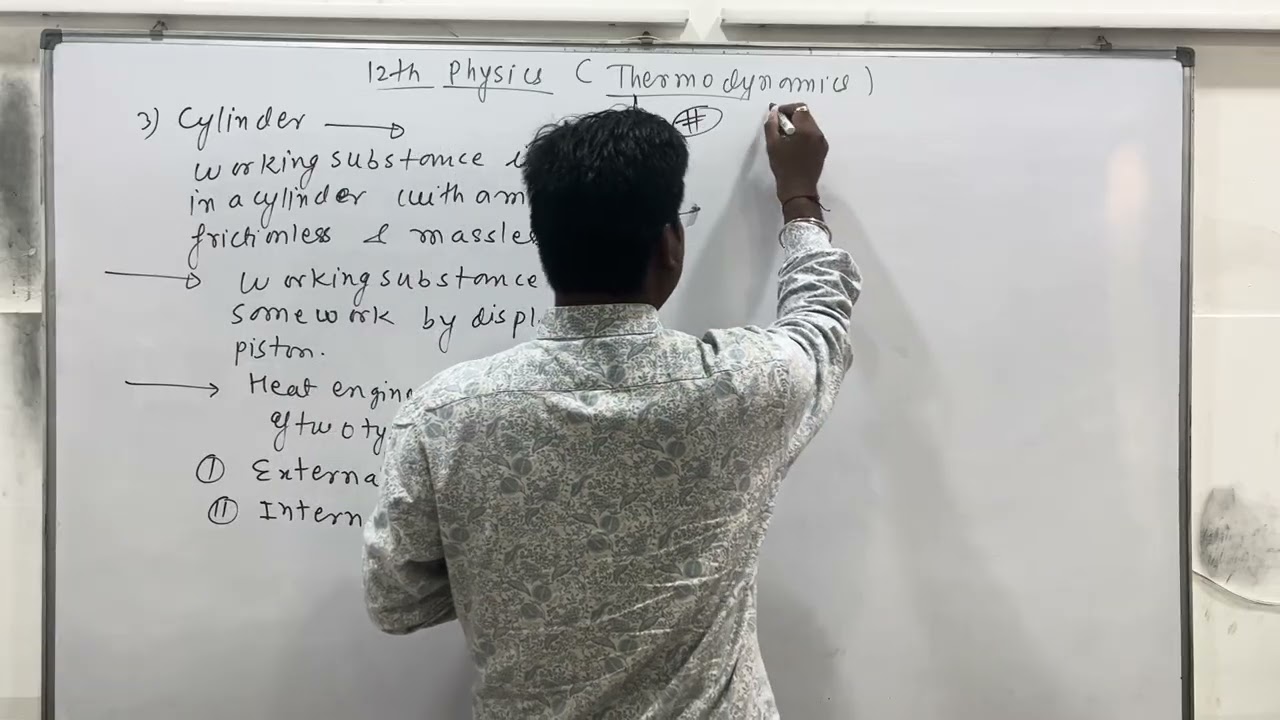 12th Physics ( Thermodynamics )
3) Cylinder
#
working substance
in a cylinder (with a m
frictionless & massles
working substance
some work by displ
piston.
Heat engin
of two ty
I External
II Intern